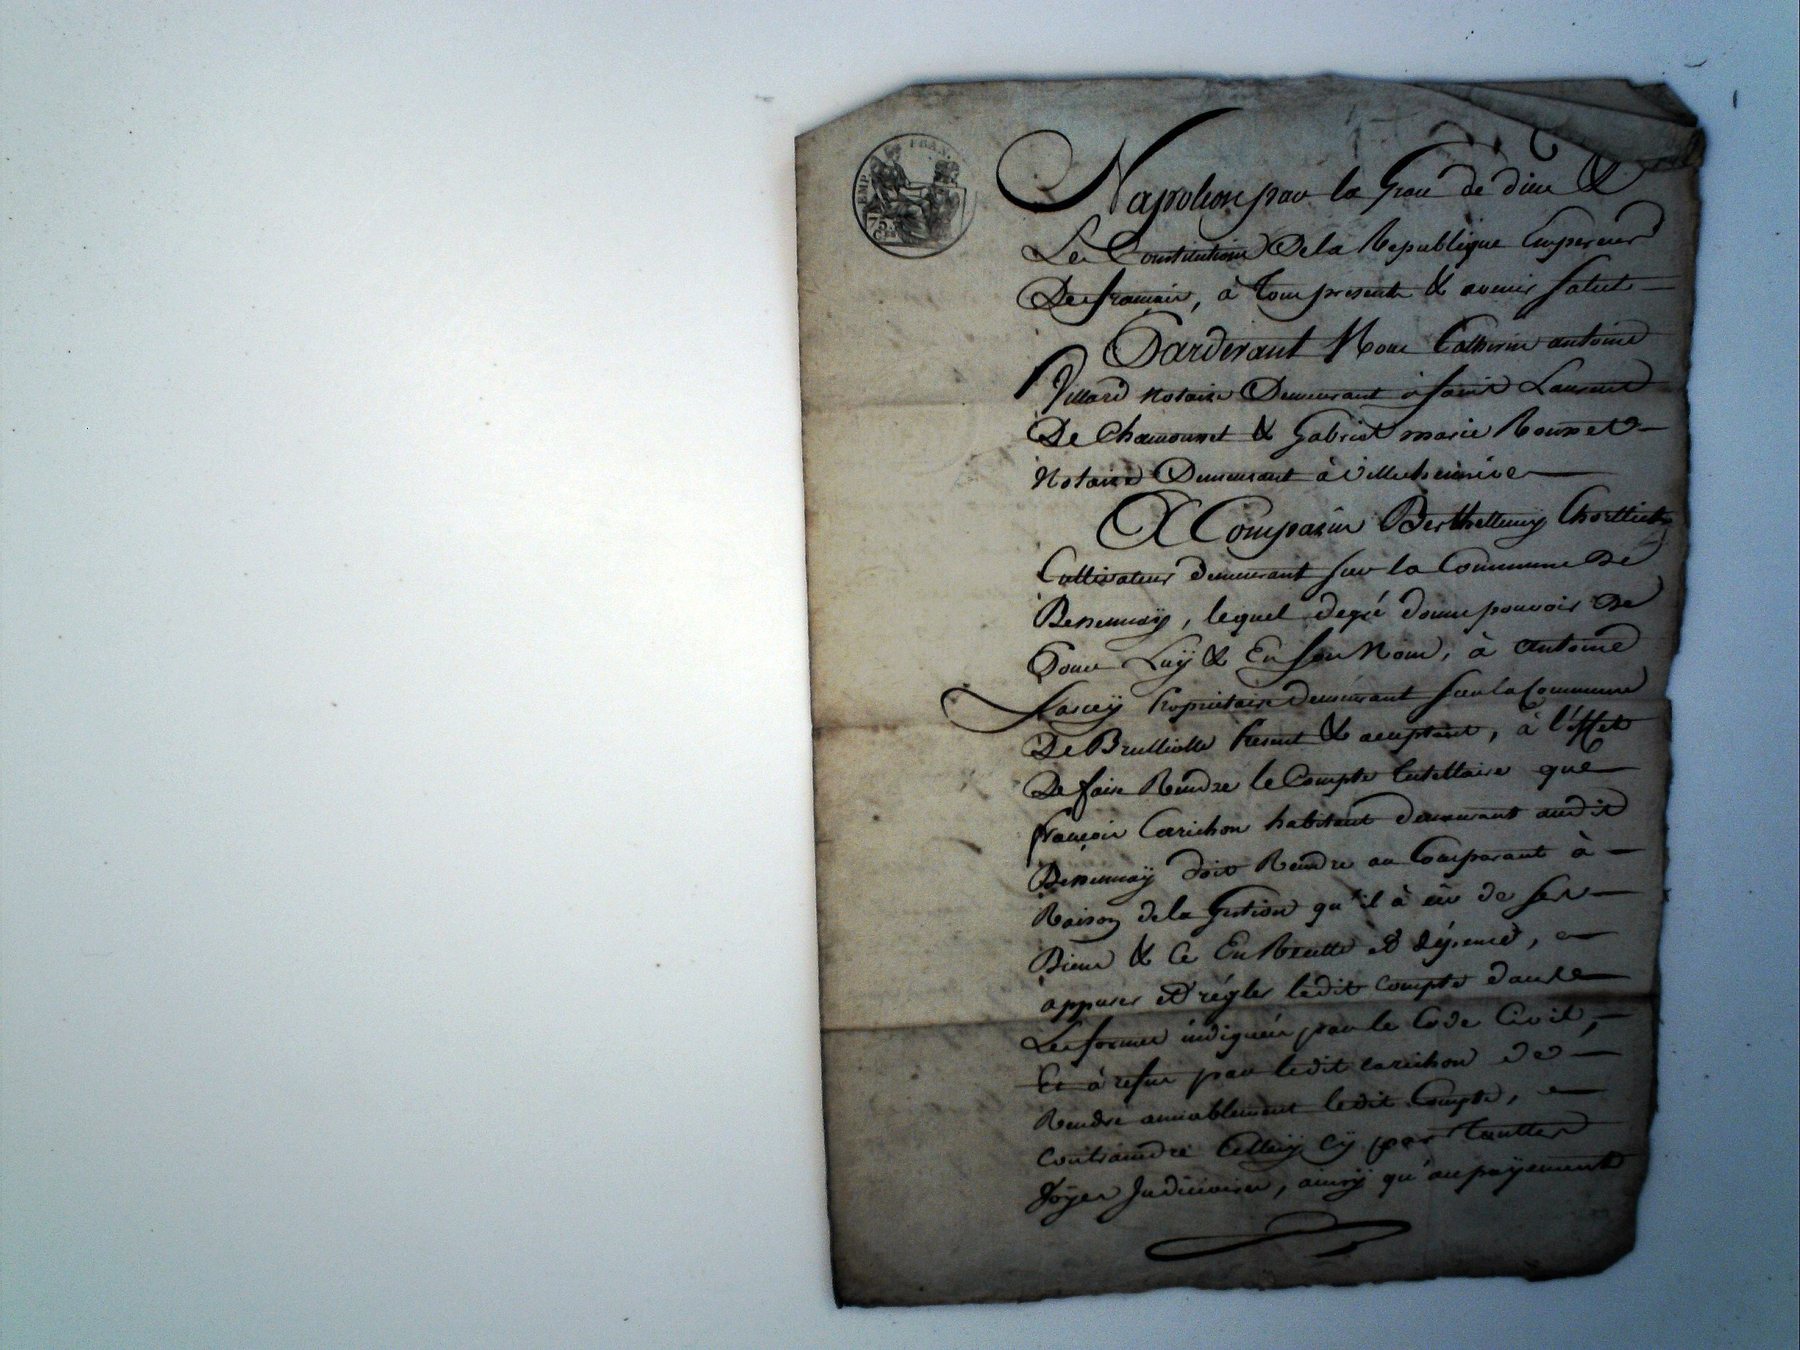 EMP. FRAN.
75 Ces
Napoleon par la Grace de dieu &
Les Constitutions De la Republique Empereur
Des français, à Tous presents & avenir Salut
Pardevant Nous Catherin antoine
Villard notaire Demeurant à Saint Laurent
De Chamousset & Gabriel marie Rousset
Notaire Demeurant à Villechenève
A Comparu Berthellemy
Cultivateur demeurant sur la Commune De
Bessenay, lequel degré donne pouvoir De
Pour Luÿ & En son Nom, à antoine
propriétaire demeurant sur la Commune
De Brulliolle present & acceptant, à l'effet
De faire Rendre le Compte tutellaire que
françois Carichon habitant demeurant audit
Bessenay doit Rendre au Comparant à
Raison de la Gestion qu'il à eü de ses
Biens & Ce En Recette et dépence,
appurer et régler ledit compte dans
Les formes indiquées par le Code Civil,
Et à refus par ledit carichon de
Rendre amiablement ledit Compte,
Contraindre Celluÿ cÿ par Touttes
Voÿes Judiciaires, ainsÿ qu'au paÿement